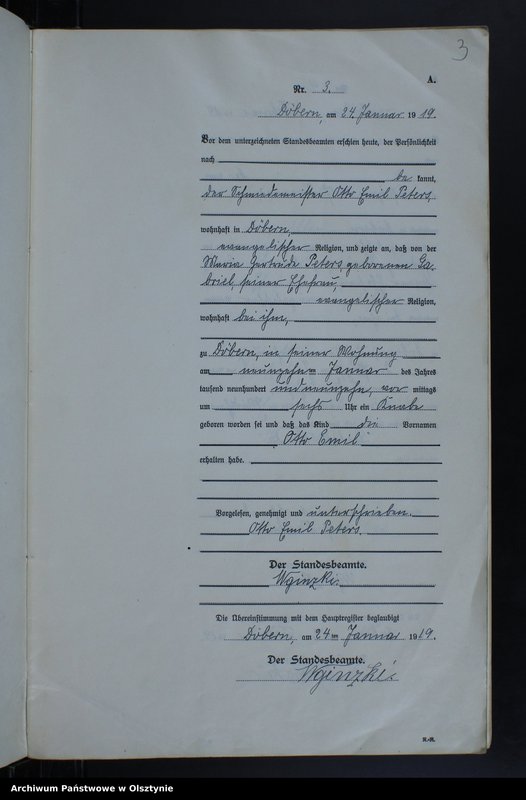 3
A.
Nr. 3.
Döbern, am 24. Januar 1919.
Vor dem unterzeichneten Standesbeamten erschien heute, der Persönlichkeit
nach
be kannt,
der Schmiedemeister Otto Emil Peters,
wohnhaft in Döbern,
evangelischer Religion, und zeigte an, daß von der
Maria Gertrude Peters geborenen Ga-
briel, seiner Ehefrau,
evangelischer Religion,
wohnhaft bei ihm,
zu Döbern, in seiner Wohnung
am neunzehn ten Januar des Jahres
tausend neunhundert undneunzehn, vor mittags
um sechs Uhr ein Knabe
geboren worden sei und daß das Kind die Vornamen
Otto Emil
erhalten habe.
Vorgelesen, genehmigt und unterschrieben.
Otto Emil Peters.
Der Standesbeamte.
Wginzki.
Die Übereinstimmung mit dem Hauptregister beglaubigt
Döbern, am 24 ten Januar 1919.
Der Standesbeamte.
Wginzki.
Archiwum Państwowe w Olsztynie